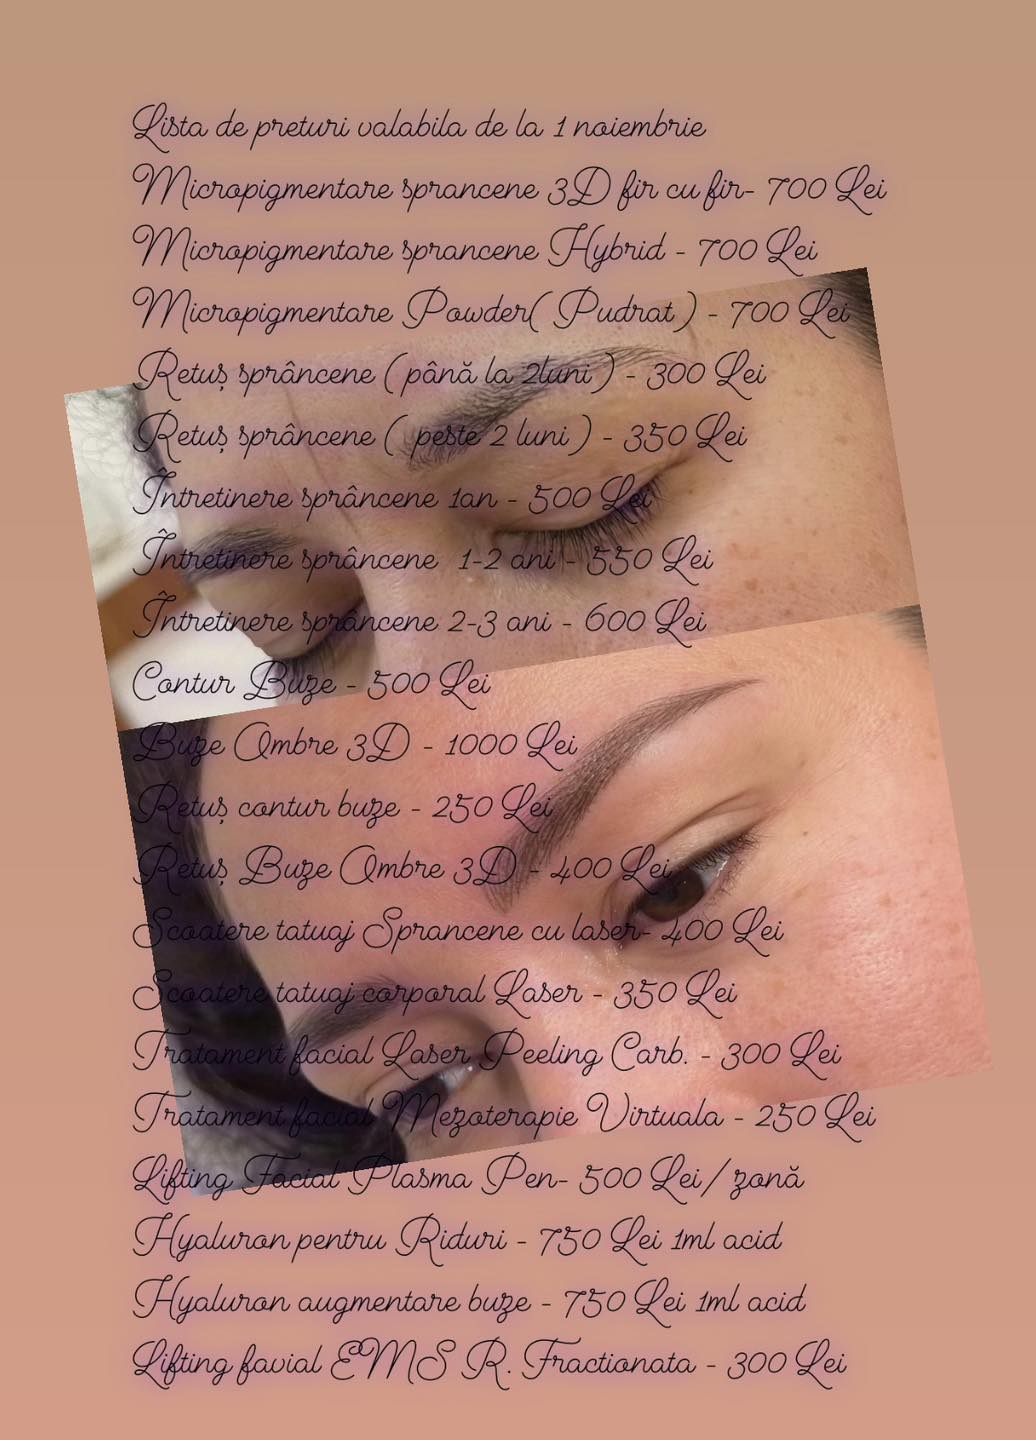 Lista de preturi valabila de la 1 noiembrie
Micropigmentare sprancene 3D fir cu fir- 700 Lei
Micropigmentare sprancene Hybrid - 700 Lei
Micropigmentare Powder( Pudrat ) - 700 Lei
Retuș sprâncene ( până la 2luni ) - 300 Lei
Retuș sprâncene ( peste 2 luni ) - 350 Lei
Întretinere sprâncene 1an - 500 Lei
Întretinere sprâncene 1-2 ani - 550 Lei
Întretinere sprâncene 2-3 ani - 600 Lei
Contur Buze - 500 Lei
Buze Ombre 3D - 1000 Lei
Retuș contur buze - 250 Lei
Retuș Buze Ombre 3D - 400 Lei
Scoatere tatuaj Sprancene cu laser- 400 Lei
Scoatere tatuaj corporal Laser - 350 Lei
Tratament facial Laser Peeling Carb. - 300 Lei
Tratament facial Mezoterapie Virtuala - 250 Lei
Lifting Facial Plasma Pen- 500 Lei/zonă
Hyaluron pentru Riduri - 750 Lei 1ml acid
Hyaluron augmentare buze - 750 Lei 1ml acid
Lifting favial EMS R. Fractionata - 300 Lei